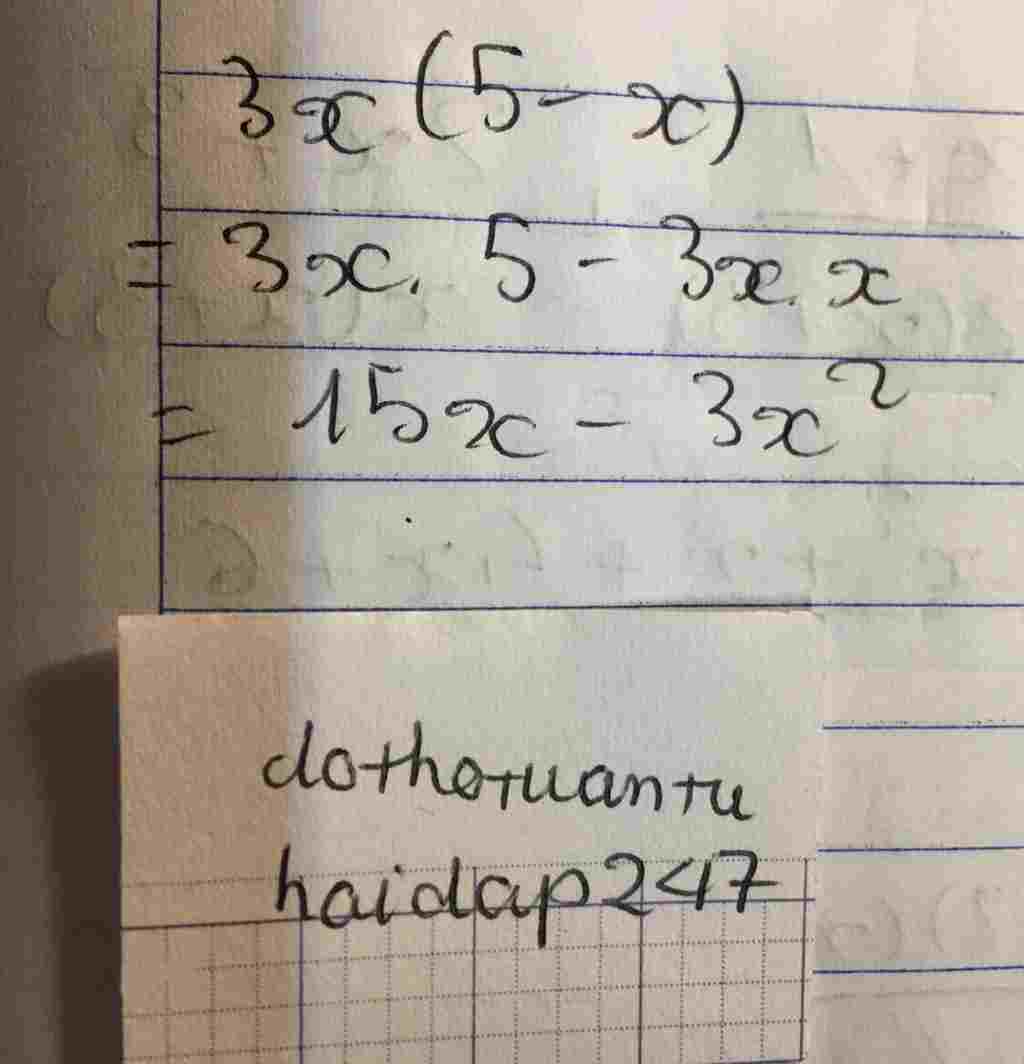 3x(5-x)
= 3x. 5 - 3x. x
= 15x - 3x²
dothotuantu
haidap247